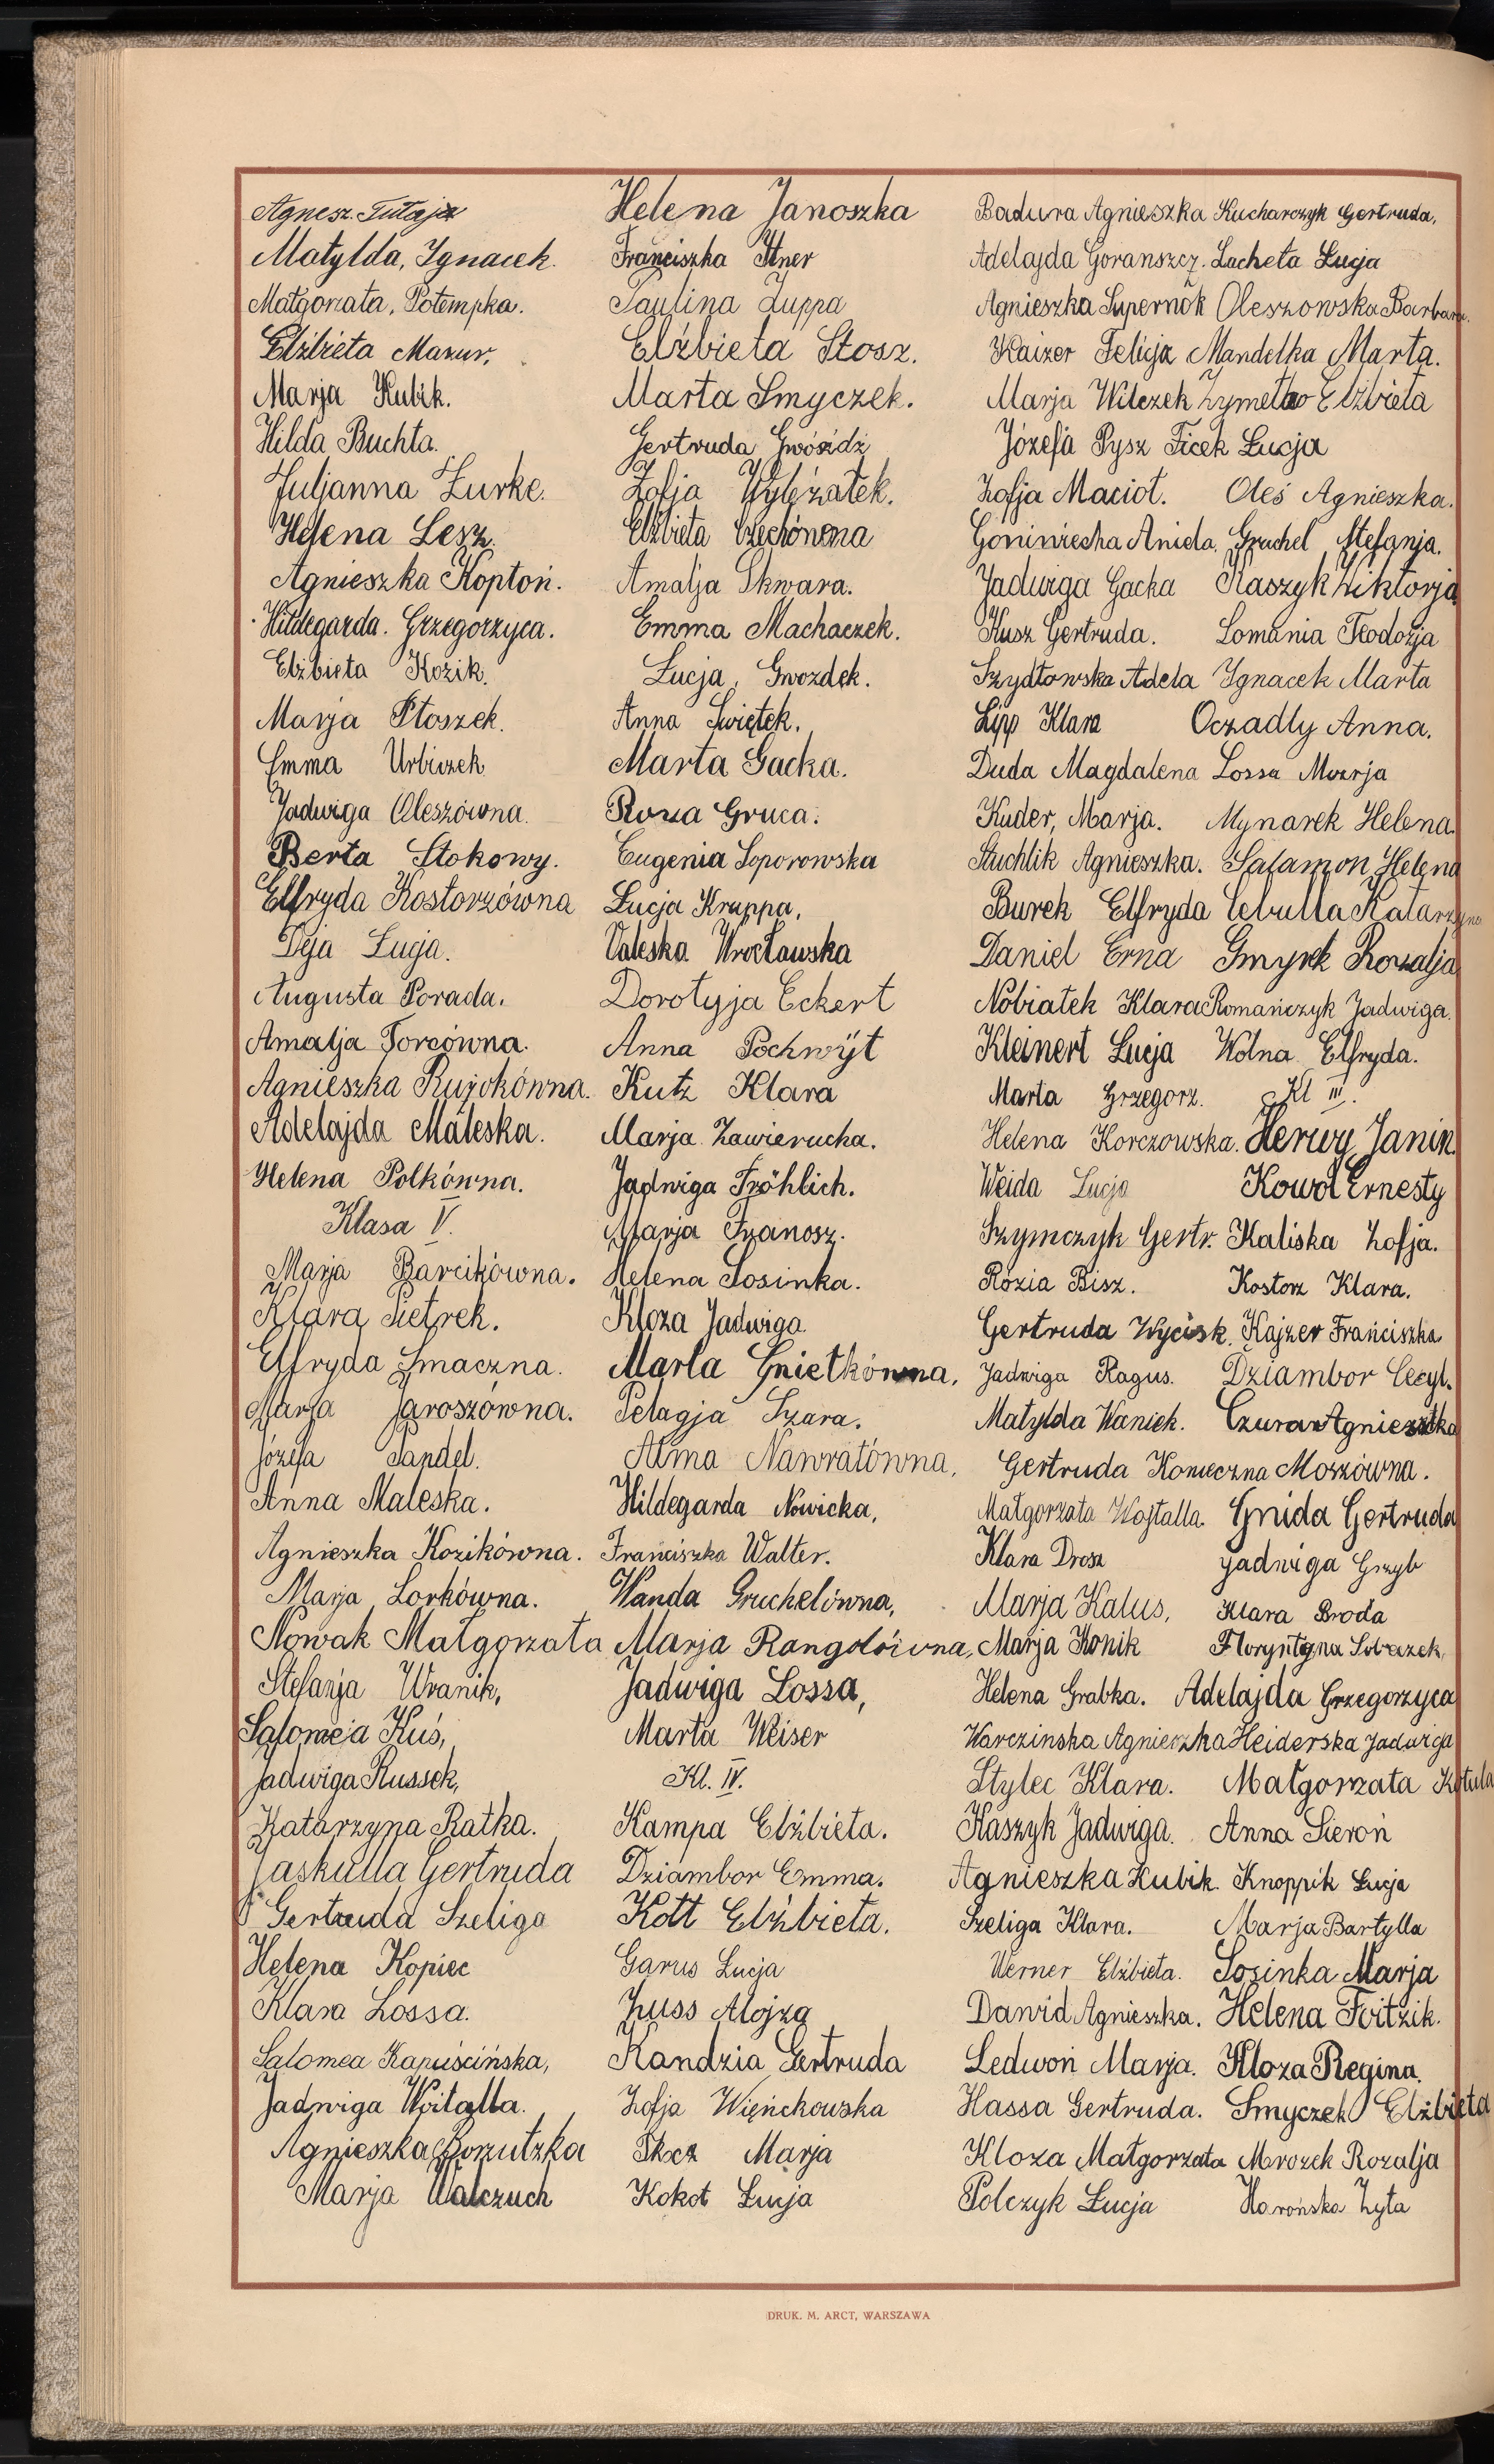 Agnesz. Tutaja
Matylda, Ignacek.
Małgorzata, Potempka.
Elżbieta Mazur,
Marja Kubik.
Hilda Buchta.
Juljanna Żurke.
Helena Lesz.
Agnieszka Koptoń.
Hildegarda. Grzegorzyca.
Elżbieta Kozik.
Marja Ptoszek.
Emma Urbiczek
Jadwiga Oleszówna.
Berta Stokowy.
Elfryda Kostorzówna
Deja Łucja.
Augusta Porada.
Amalja Forcówna.
Agnieszka Rujokówna.
Adelajda Maleska.
Helena Polkówna.
Klasa V.
Marja Barcikówna.
Klara Pietrek.
Elfryda Smaczna.
Marja Jaroszówna.
Józefa Pandel.
Anna Maleska.
Agnieszka Kozikówna.
Marja Lorkówna.
Nowak Małgorzata
Stefanja Wranik,
Salomeja Kuś,
Jadwiga Russek,
Katarzyna Ratka.
Jaskulla Gertruda
Gertruda Szeliga
Helena Kopiec
Klara Lossa.
Salomea Kapuścińska,
Jadwiga Woitalla.
Agnieszka Borzutzka
Marja Walczuch
Helena Janoszka
Franciszka Ittner
Paulina Zuppa
Elżbieta Stosz.
Marta Smyczek.
Gertruda Gwóźdź
Zofja Wyleżałek.
Elżbieta Czechównna
Amalja Skwara.
Emma Machaczek.
Łucja, Gwozdek.
Anna Świętek,
Marta Gacka.
Roza Gruca.
Eugenia Soporowska
Łucja Kruppa,
Valeska Wrocławska
Dorotyja Eckert
Anna Pochwyt
Kutz Klara
Marja Zawierucha.
Jadwiga Fröhlich.
Marja Franosz.
Helena Sosinka.
Kloza Jadwiga.
Marta Gnietkówna,
Pelagja Szara.
Alma Nawratówna,
Hildegarda Nowicka,
Franciszka Walter.
Wanda Gruchelówna,
Marja Rangolówna,
Jadwiga Lossa,
Marta Weiser
Kl. IV.
Kampa Elżbieta.
Dziambor Emma.
Kott Elżbieta.
Garus Łucja
Zuss Alojza
Kandzia Gertruda
Zofja Więńckowska
Marja
Kokot Łucja
Badura Agnieszka Kucharczyk Gertruda,
Adelajda Goranszcz. Lacheta Łucja
Agnieszka Supernok Oleszowska Barbara.
Kaizer Felicja Mandelka Marta.
Marja Wilczek Elżbieta
Józefa Pysz Ficek Łucja
Zofja Maciot. Oleś Agnieszka.
Aniela. Gruchel Stefanja.
Jadwiga Gacka Kaszyk Wiktorja
Kusz Gertruda. Lomania Teodozja
Szydłowska Adela Ignacek Marta
Lipp Klara Oczadly Anna.
Duda Magdalena Lossa Marja
Kuder, Marja. Mynarek Helena.
Stuchlik Agnieszka. Salamon Helena
Burek Elfryda Cebulla Katarzyna
Daniel Erna Gmyrek Rozalja
Nobiatek Klara Romańczyk Jadwiga.
Kleinert Łucja Wolna Elfryda.
Marta Grzegorz. Kl III.
Helena Korczowska. Herwy Janin.
Weida Lucja Kowol Ernesty
Szymczyk Gertr. Kaliska Zofja.
Rózia Bisz. Kostorz Klara.
Gertruda Wycisk. Kajzer Franciszka
Jadwiga Ragus. Dziambor Cecyl.
Matylda Waniek. Czura Agnieszka
Gertruda Konieczna Moszówna.
Małgorzata Wojtalla. Gnida Gertruda
Klara Drosz Jadwiga Grzyb
Marja Kalus, Klara Broda
Marja Konik Floryntyna
Helena Grabka. Adelajda Grzegorzyca
Warczinska Agnieszka Heiderska Jadwiga
Stylec Klara. Małgorzata Kotula
Kaszyk Jadwiga. Anna Sieroń
Agnieszka Kubik. Knoppik Łucja
Szeliga Klara. Marja Bartylla
Werner Elżbieta. Sosinka Marja
Dawid Agnieszka. Helena Foitzik.
Ledwoń Marja. Kloza Regina.
Hassa Gertruda. Smyczek Elżbieta
Kloza Małgorzata Mrozek Rozalja
Polczyk Łucja Harońska Zyta
DRUK. M. ARCT, WARSZAWA